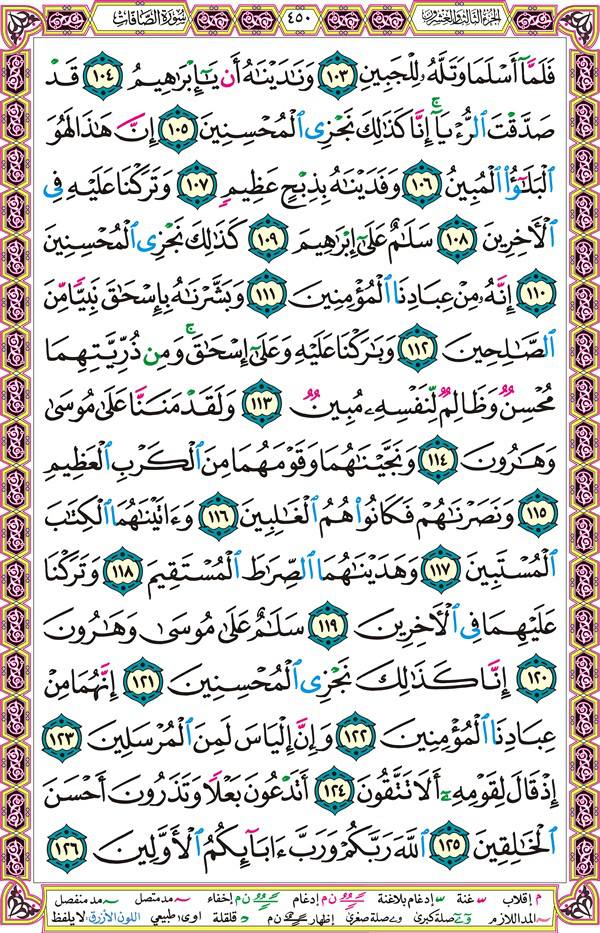 الجزء الثالث والعشرون ٤٥٠ سورة الصافات
فَلَمَّآ أَسْلَمَا وَتَلَّهُۥ لِلْجَبِينِ ١٠٣ وَنَٰدَيْنَٰهُ أَن يَٰٓإِبْرَٰهِيمُ ١٠٤ قَدْ
صَدَّقْتَ ٱلرُّءْيَآ ۚ إِنَّا كَذَٰلِكَ نَجْزِى ٱلْمُحْسِنِينَ ١٠٥ إِنَّ هَٰذَا لَهُوَ
ٱلْبَلَٰٓؤُا۟ ٱلْمُبِينُ ١٠٦ وَفَدَيْنَٰهُ بِذِبْحٍ عَظِيمٍ ١٠٧ وَتَرَكْنَا عَلَيْهِ فِى
ٱلْءَاخِرِينَ ١٠٨ سَلَٰمٌ عَلَىٰٓ إِبْرَٰهِيمَ ١٠٩ كَذَٰلِكَ نَجْزِى ٱلْمُحْسِنِينَ
١١٠ إِنَّهُۥ مِنْ عِبَادِنَا ٱلْمُؤْمِنِينَ ١١١ وَبَشَّرْنَٰهُ بِإِسْحَٰقَ نَبِيًّا مِّنَ
ٱلصَّٰلِحِينَ ١١٢ وَبَٰرَكْنَا عَلَيْهِ وَعَلَىٰٓ إِسْحَٰقَ ۚ وَمِن ذُرِّيَّتِهِمَا
مُحْسِنٌ وَظَالِمٌ لِّنَفْسِهِۦ مُبِينٌ ١١٣ وَلَقَدْ مَنَنَّا عَلَىٰ مُوسَىٰ
وَهَٰرُونَ ١١٤ وَنَجَّيْنَٰهُمَا وَقَوْمَهُمَا مِنَ ٱلْكَرْبِ ٱلْعَظِيمِ
١١٥ وَنَصَرْنَٰهُمْ فَكَانُوا۟ هُمُ ٱلْغَٰلِبِينَ ١١٦ وَءَاتَيْنَٰهُمَا ٱلْكِتَٰبَ
ٱلْمُسْتَبِينَ ١١٧ وَهَدَيْنَٰهُمَا ٱلصِّرَٰطَ ٱلْمُسْتَقِيمَ ١١٨ وَتَرَكْنَا
عَلَيْهِمَا فِى ٱلْءَاخِرِينَ ١١٩ سَلَٰمٌ عَلَىٰ مُوسَىٰ وَهَٰرُونَ
١٢٠ إِنَّا كَذَٰلِكَ نَجْزِى ٱلْمُحْسِنِينَ ١٢١ إِنَّهُمَا مِنْ
عِبَادِنَا ٱلْمُؤْمِنِينَ ١٢٢ وَإِنَّ إِلْيَاسَ لَمِنَ ٱلْمُرْسَلِينَ ١٢٣
إِذْ قَالَ لِقَوْمِهِۦٓ أَلَا تَتَّقُونَ ١٢٤ أَتَدْعُونَ بَعْلًا وَتَذَرُونَ أَحْسَنَ
ٱلْخَٰلِقِينَ ١٢٥ ٱللَّهَ رَبَّكُمْ وَرَبَّ ءَابَآئِكُمُ ٱلْأَوَّلِينَ ١٢٦
م إقلاب غنة إدغام بلاغنة ن م إدغام ن م إخفاء مد متصل مد منفصل
المد اللازم صلة كبرى صلة صغرى إظهار ن م قلقلة اوى: طبيعي اللون الأزرق: لا يلفظ